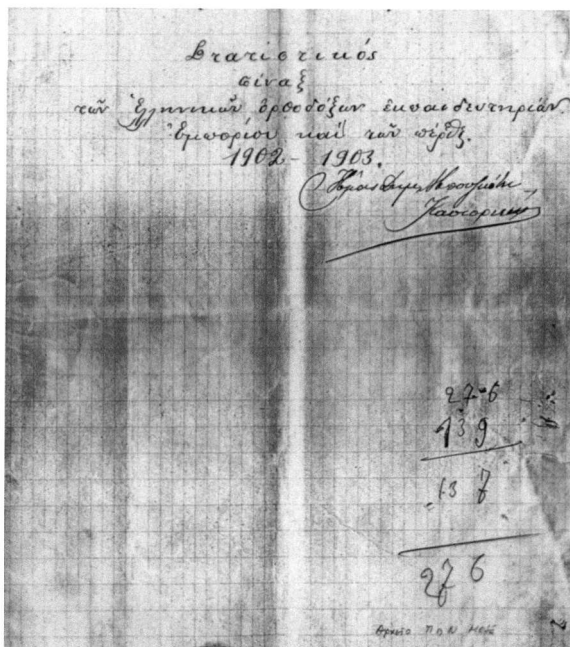 Στατιστικός
πίναξ
τῶν Ἑλληνικῶν ὀρθοδόξων ἐκπαιδευτηρίων
Ἐμπορίου καὶ τῶν πέριξ.
1902 - 1903.
276
139
137
276
Αρχείο